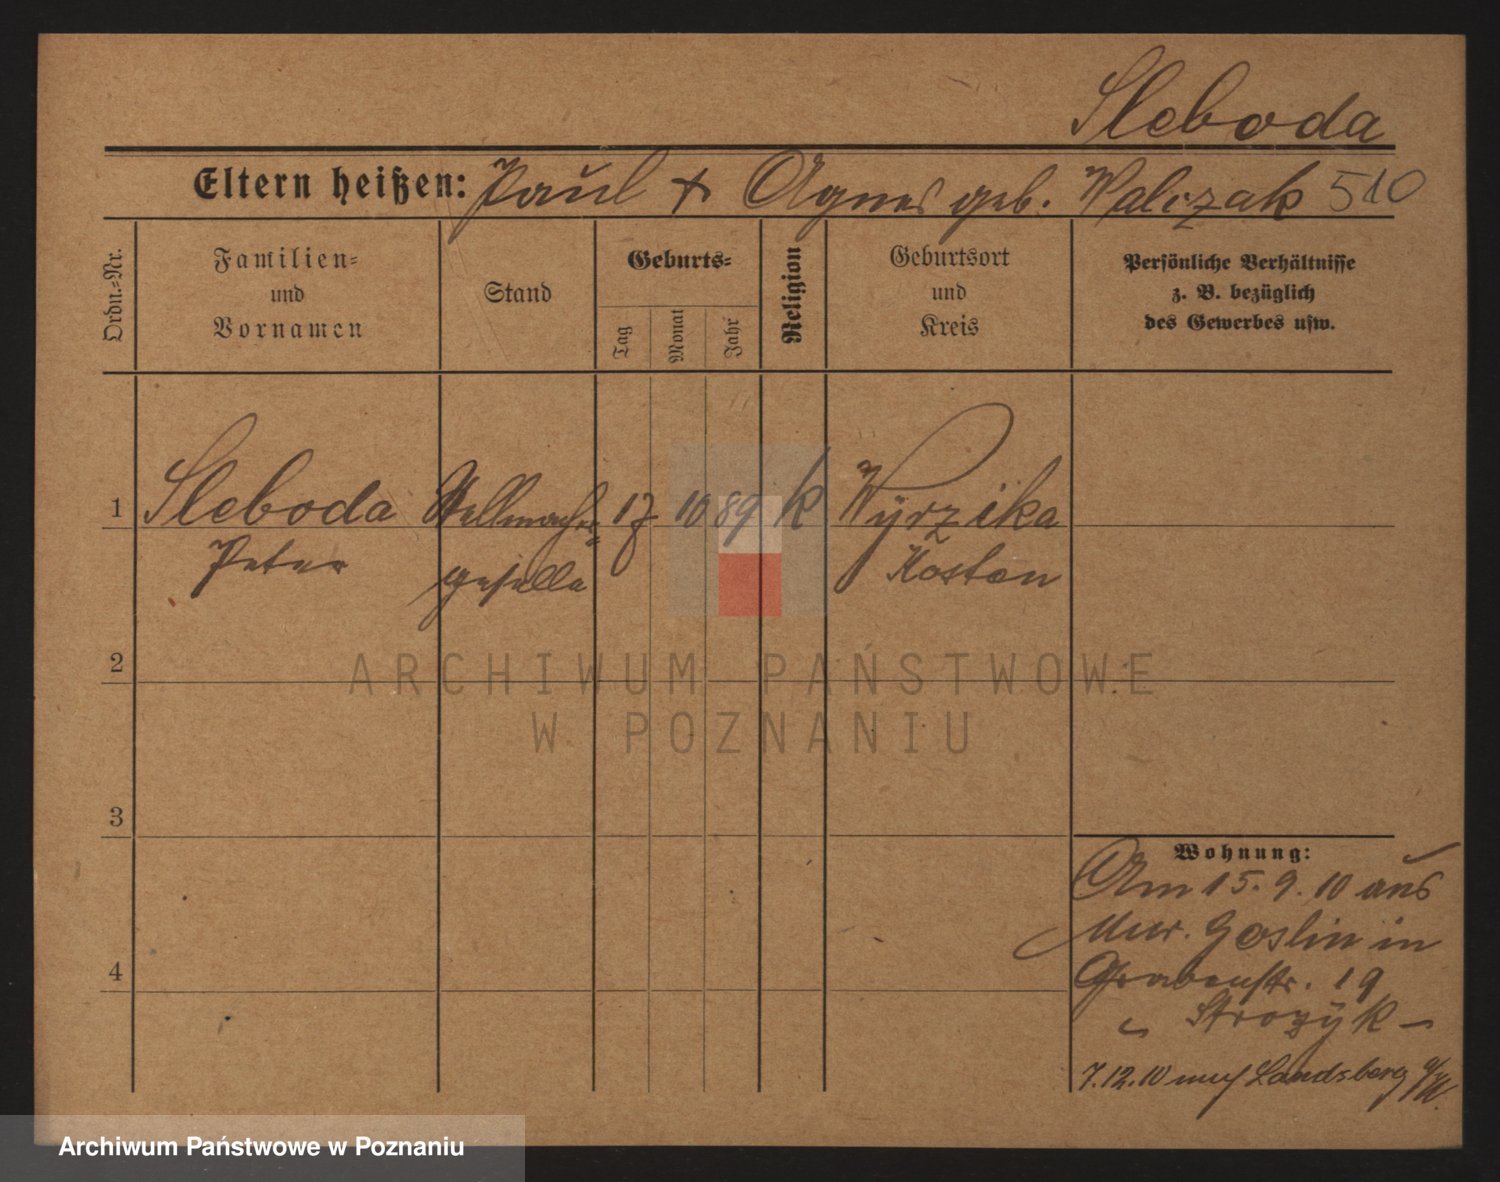 Sleboda
Eltern heißen: Paul + Agnes geb. Walczak 510
Ordn.-Nr.
Familien-
und
Vornamen
Stand
Geburts-
Tag
Monat
Jahr
Religion
Geburtsort
und
Kreis
Persönliche Verhältnisse
z. B. bezüglich
des Gewerbes usw.
1 Sleboda Stellmacher- 17 10 89 k Wyrzika
Peter geselle Kosten
2
3
4
Wohnung:
Am 15.9.10 aus
Mur. Goslin in
Grabenstr. 19
Strozyk
7.12.10 nach Landsberg a/W.
ARCHIWUM PAŃSTWOWE
W POZNANIU
Archiwum Państwowe w Poznaniu